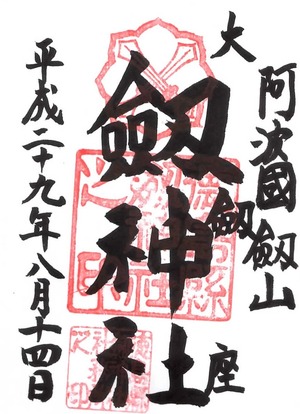 阿波國劔山
大劔座
劔神社
平成二十九年八月十四日